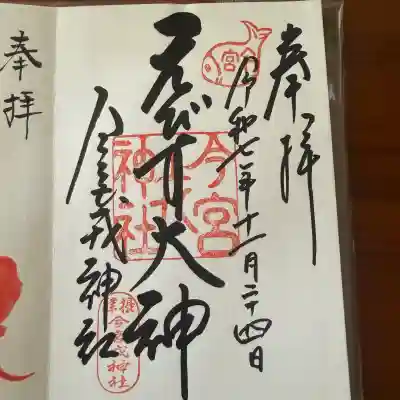 奉拝
令和七年十一月二十四日
今宮
えびす大神
今宮戎神社
今宮
神社
今宮戎神社
奉拝